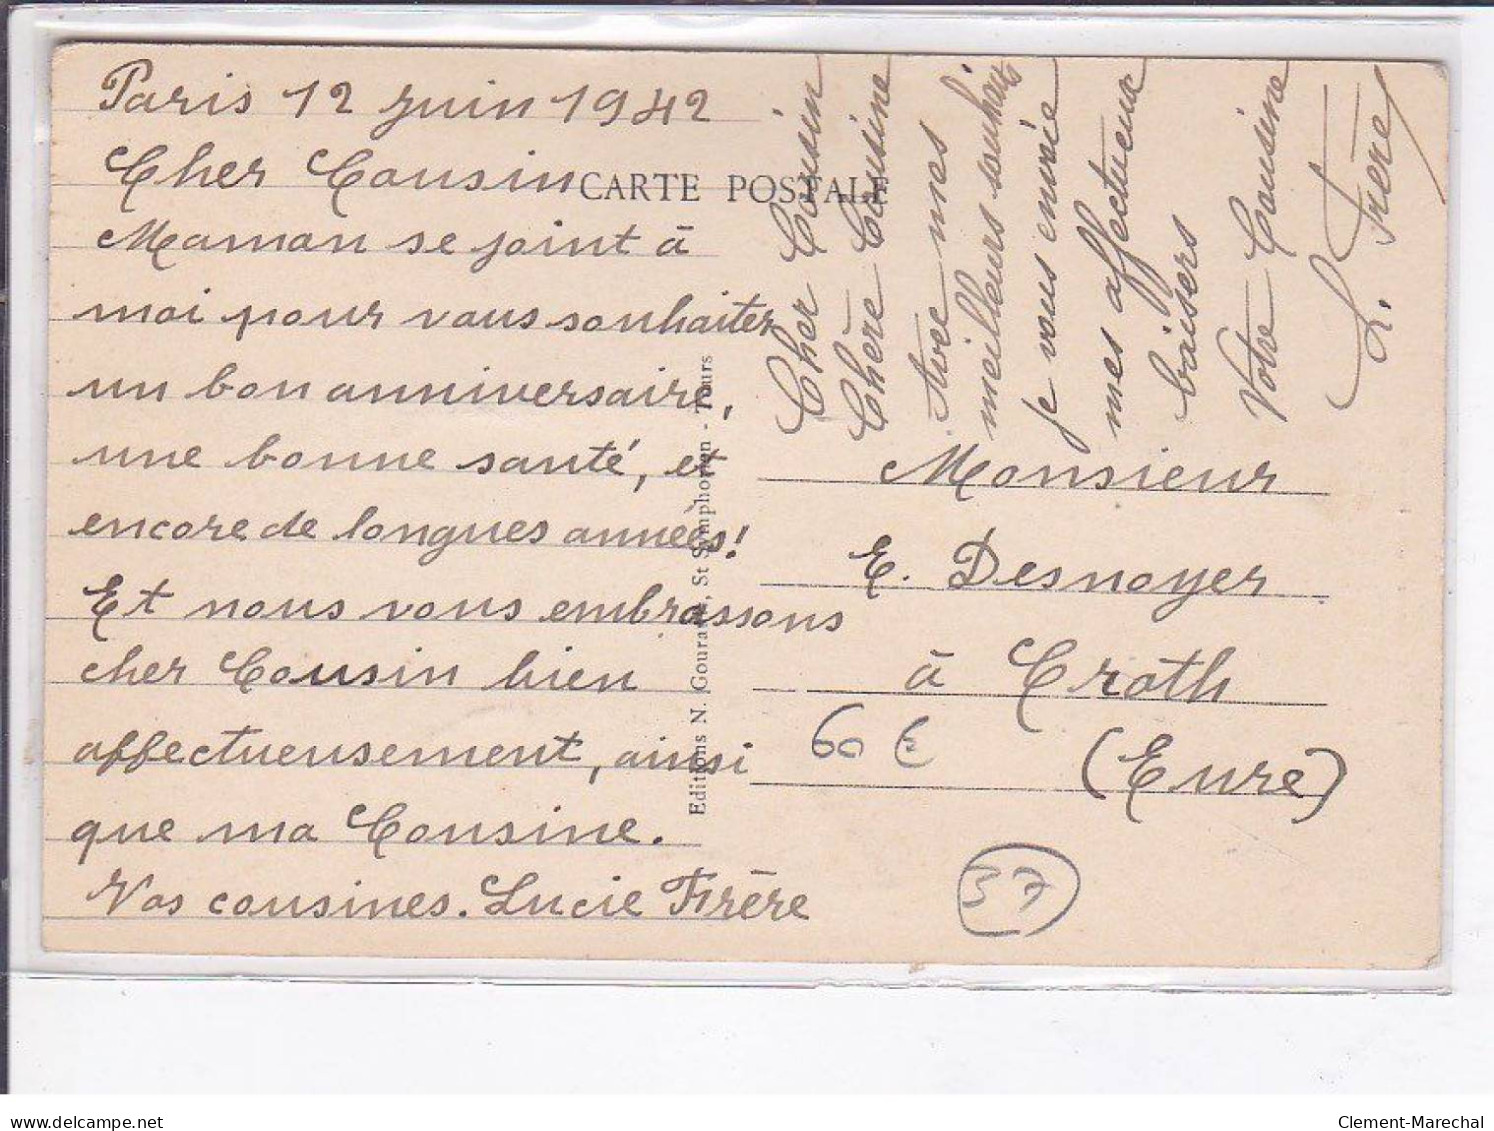 Paris 12 juin 1942
Cher Cousin
CARTE POSTALE
Maman se joint à
moi pour vous souhaiter
un bon anniversaire,
une bonne santé, et
encore de longues années!
Et nous vous embrassons
cher Cousin bien
affectueusement, ainsi
que ma Cousine.
Vos cousines. Lucie Frère
Editions N. Gourault, St Symphorien - Tours
Cher Cousin
Chère Cousine
Avec mes
meilleurs souhaits
je vous envoie
mes affectueux
baisers
Votre Cousine
L. Frère
Monsieur
E. Desnoyer
à Croth
(Eure)
60 €
37
delcampe.net
Clement-Marechal